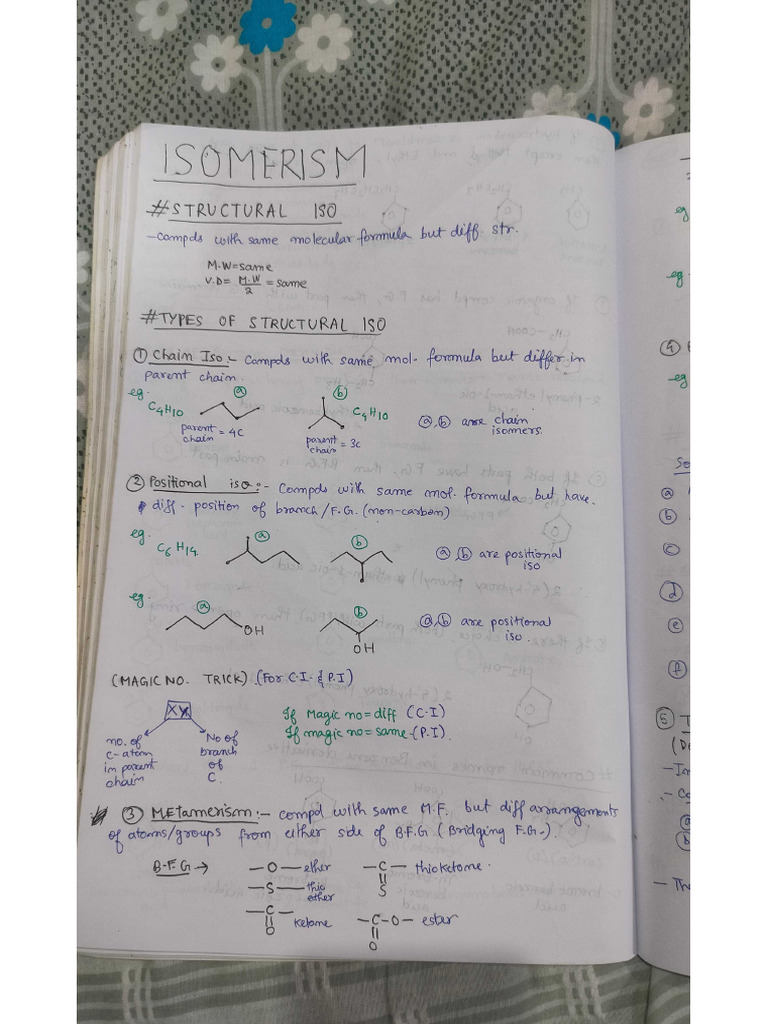 ISOMERISM
#STRUCTURAL ISO
-Compds with same molecular formula but diff str.
M.W=same
V.D= M.W/2 = same
#TYPES OF STRUCTURAL ISO
① Chain Iso:- Compds with same mol- formula but differ in
parent chain.
eg. ⓐ ⓑ
C4H10 C4H10 ⓐ,ⓑ are chain
parent chain = 4C parent chain = 3C isomers.
② Positional iso:- Compds with same mol- formula but have
diff- position of branch/F.G.(non-carbon)
eg. ⓐ ⓑ
C6H14 ⓐ,ⓑ are positional
iso
eg. ⓐ ⓑ ⓐ,ⓑ are positional
OH iso.
OH
(MAGIC NO. TRICK).(FOR C.I- & P.I)
XY If Magic no=diff (C-I)
If magic no=same-(P.I).
no. of
c-atom
in parent
chain
No of
branch
of
C.
③ Metamerism:- compd with same M.F. but diff arrangements
of atoms/groups from either side of B.F.G (Bridging F.G-).
B.F.G → —O— ether —C— thioketone.
S
—S— thio
ether
—C— ketone —C—O— ester
O O
eg
eg
④
eg
#
So
ⓐ
ⓑ
ⓒ
ⓓ
ⓔ
ⓕ
⑤ T
ⓐ
ⓑ
- Th